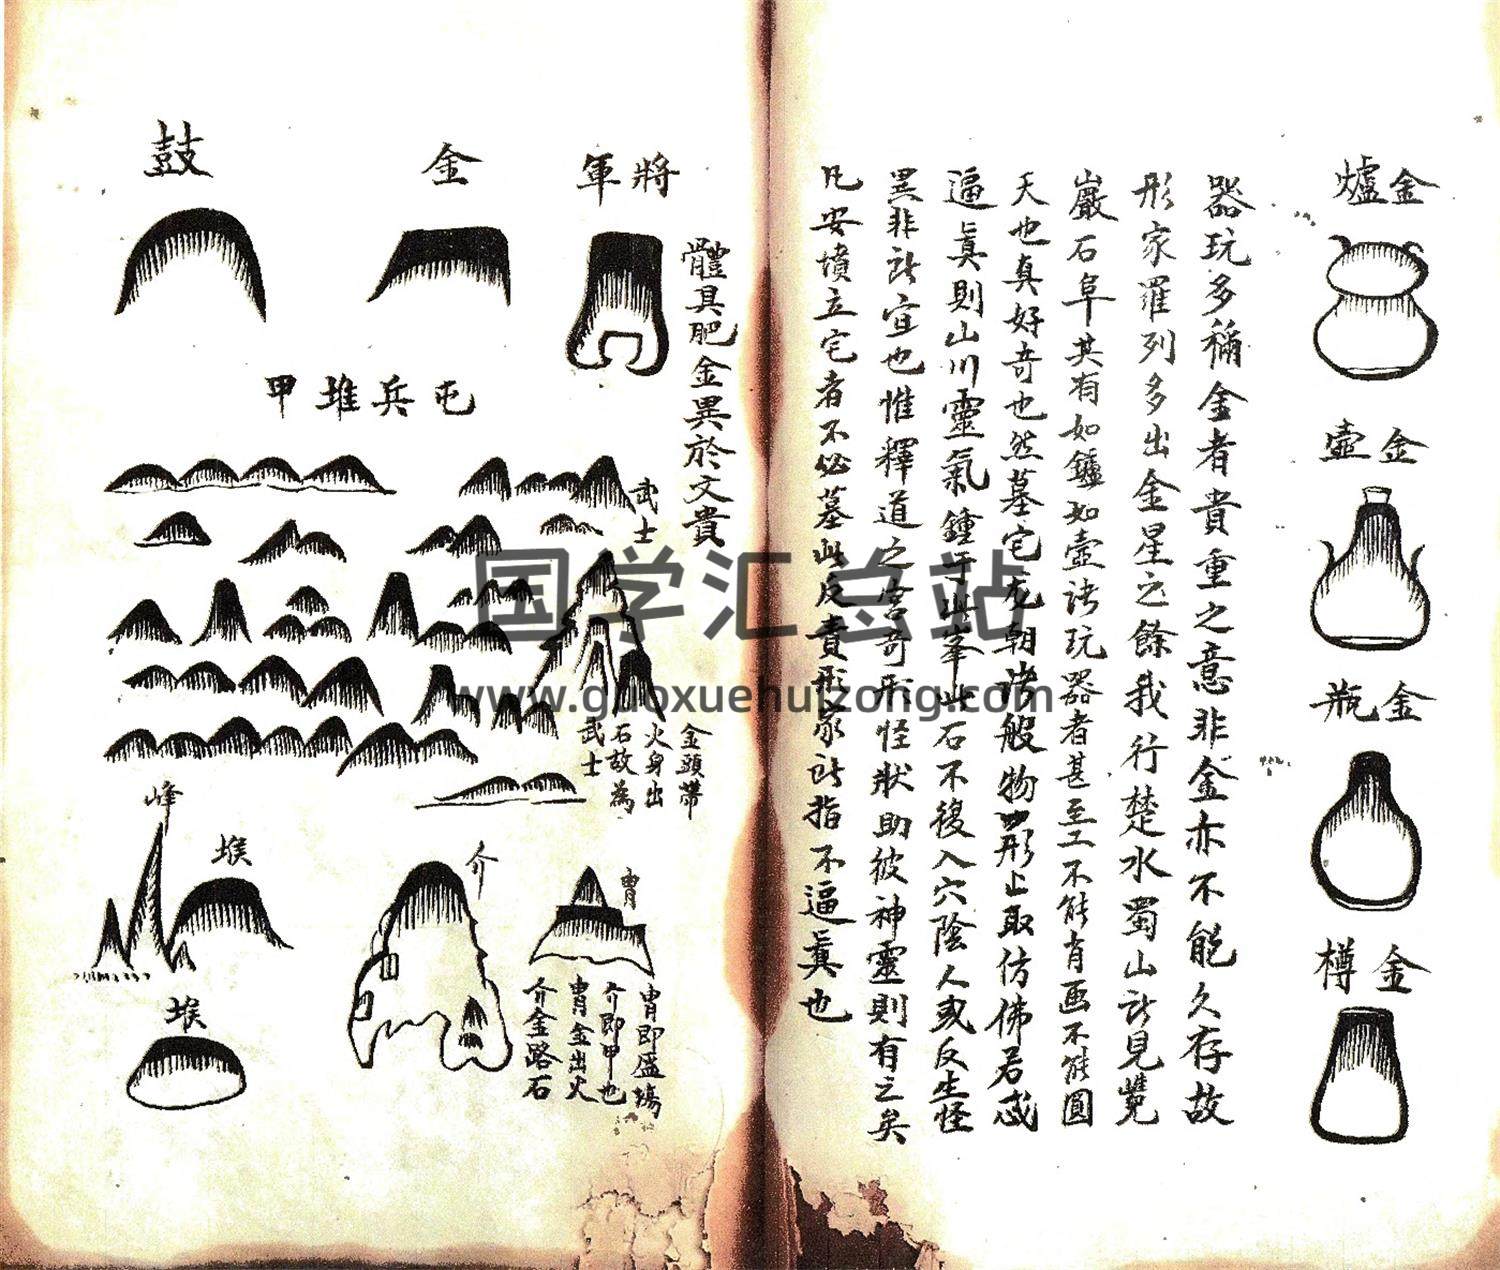 金爐
金壺
金瓶
金樽
器玩多稱金者貴重之意非金亦不能久存故
形家羅列多出金星之餘我行楚水蜀山所見甖
巖石阜其有如鑪如壺诸玩器者甚至工不能肖画不能圓
天也真好奇也然墓宅龙朝诸般物形止取仿佛若忒
逼眞則山川靈氣鍾于此峯此石不復入穴陰人或反生怪
異非所宜也惟釋道之宫奇形怪狀助彼神靈則有之矣
凡安墳立宅者不必墓此反責形家所指不逼眞也
將軍
金
鼓
體具肥金異於文貴
屯兵堆甲
武士
金頭帶
火身出
石故為
武士
峰
堠
堠
介
冑
冑即盔塲
介即甲也
冑金出火
介金路石
国学汇总站
www.guoxuehuizong.com